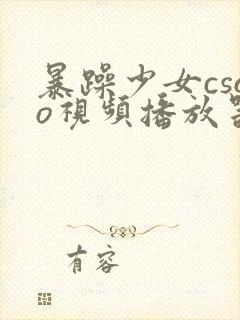 暴躁少女cso
o視頻播放器
有容